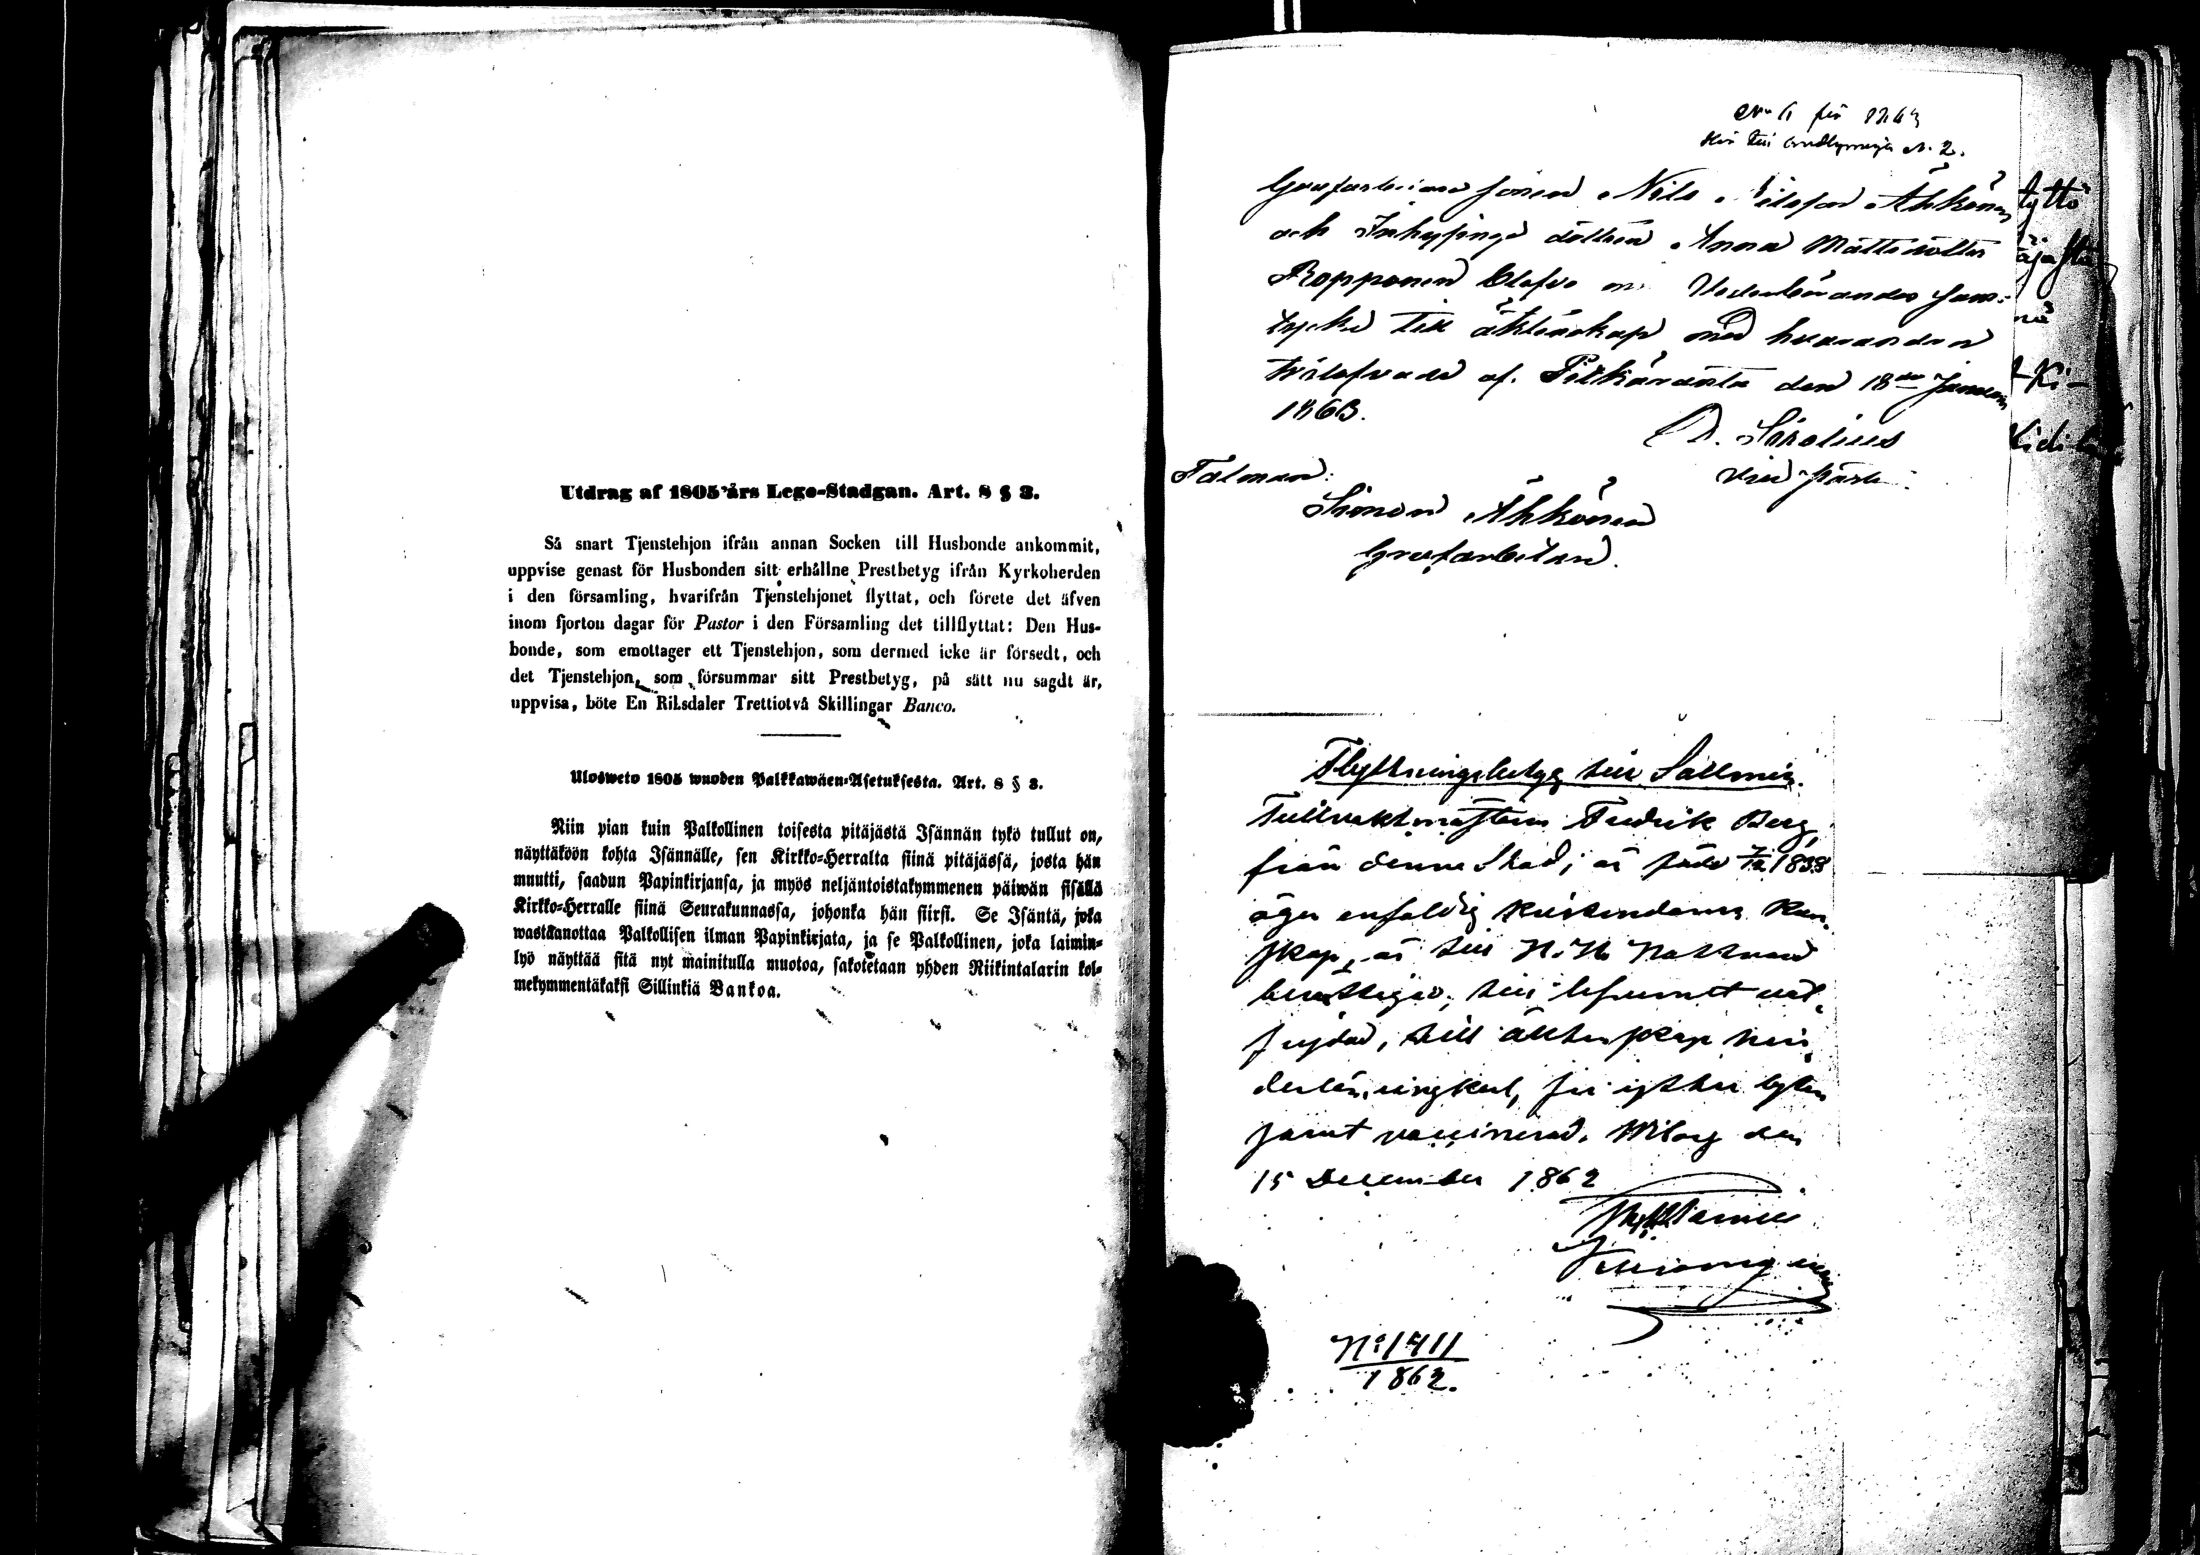 Utdrag af 1805 års Lego-Stadgan. Art. 8 § 3.
Så snart Tjenstehjon ifrån annan Socken till Husbonde ankommit,
uppvise genast för Husbonden sitt erhållne Prestbetyg ifrån Kyrkoherden
i den församling, hvarifrån Tjenstehjonet flyttat, och förete det äfven
inom fjorton dagar för Pastor i den Församling det tillflyttat: Den Hus-
bonde, som emottager ett Tjenstehjon, som dermed icke är försedt, och
det Tjenstehjon, som försummar sitt Prestbetyg, på sätt nu sagdt är,
uppvisa, böte En Riksdaler Trettiotvå Skillingar Banco.
Ulosweto 1805 wuoden Palkkawäen-Asetuksesta. Art. 8 § 3.
Niin pian kuin Palkollinen toisesta pitäjästä Isännän tykö tullut on,
näyttäköön kohta Isännälle, sen Kirkko-Herralta siinä pitäjässä, josta hän
muutti, saadun Papinkirjansa, ja myös neljäntoistakymmenen päiwän sisällä
Kirkko-Herralle siinä Seurakunnassa, johonka hän siirsi. Se Isäntä, joka
wastaanottaa Palkollisen ilman Papinkirjata, ja se Palkollinen, joka laimin-
lyö näyttää sitä nyt mainitulla muotoa, sakotetaan yhden Riikintalarin kol-
mekymmentäkaksi Sillinkiä Bankoa.
No 6 för 1863
N. 2.
sonen Nils Ähkönen
och Inhysings dottren Anna Mattsdotter
Ropponen
tycke till äktenskap med hvarandra
trolofvade af. Pitkäranta den 18de Januari
1863.
Sirelius
Talman:
Simon Ähkönen
Grufarbetare.
tyttö
Flyttningsbetyg till Sallmis.
Tullvaktmästaren Fredrik Berg,
från denna Stad, är född 1838
äger enfaldig kristendoms kun-
skap, är till H. H. Nattvard
berättigad, till lefvernet väl-
frejdad, till äktenskap hin-
derslös, för lyten
samt vaccinerad. Wiborg den
15 December 1862
No 1711
1862.